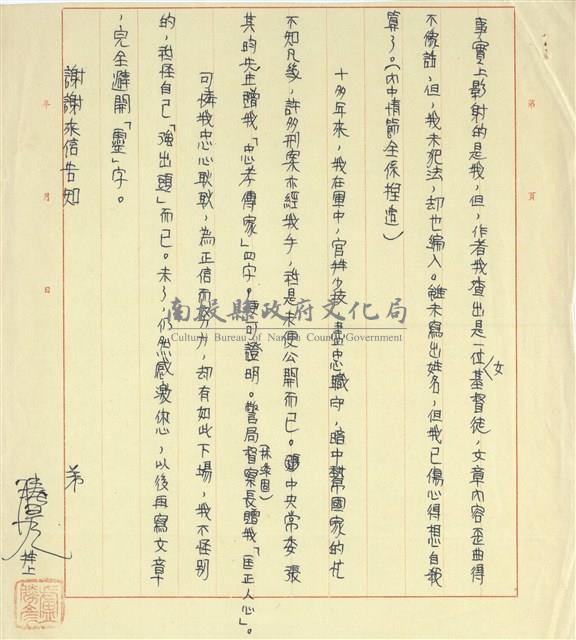 第 頁
事實上影射的是我,但,作者我查出是一位<女>基督徒,文章內容歪曲得
不像話,但,我未犯法,却也編入。雖未寫出姓名,但我已傷心得想自我
算了。(內中情節全係捏造)
十多年來,我在軍中,官拜少校,盡忠職守,暗中幫國家的忙
不知凡幾,許多刑案亦經我手,祇是未便公開而已。中央常委 張
其昀先生贈我「忠孝傳家」四字。便可證明。警局督察長贈我「匡正人心」。
可憐我忠心耿耿,為正信而努力,却有如此下場,我不怪別
的,祇怪自己「強出頭」而已。未了,仍然感激你心,以後再寫文章
,完全避開「靈」字。
謝謝來信告知
弟
上
年 月 日
南投縣政府文化局
Cultural Bureau of Nantou County Government